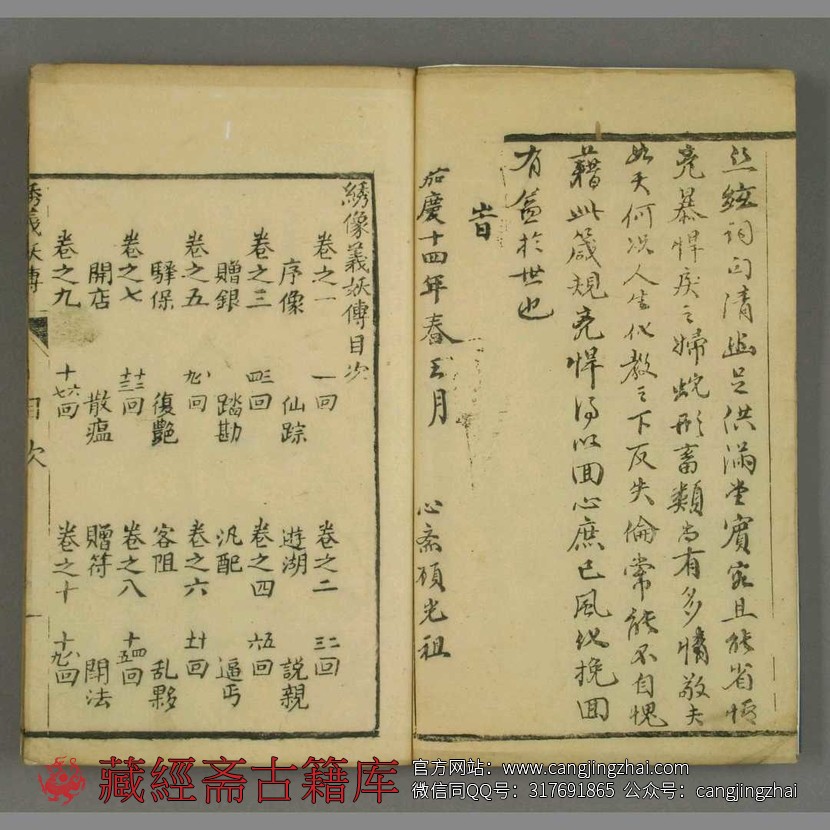 絲絃詞句清幽足供滿堂賓客且能省悟
亮暴悍戾之婦蛇形畜類尚有多情敬夫
如天何況人生化教之下反失倫常能不自愧
藉此箴規亮悍得以回心庶已風化挽回
有益於世也
旹
嘉慶十四年春王月
心斋碩光祖
綉像義妖傳目次
卷之一 一回 卷之二 二三回
序像 仙踪 遊湖 說親
卷之三 三四回 卷之四 五六回
贈銀 踏勘 汎配 逼丐
卷之五 九回 卷之六 十回
驛保 復艷 客阻 乱夥
卷之七 十二十三回 卷之八 十四十五回
開店 散瘟 贈符 鬥法
卷之九 十六十七回 卷之十 十八十九回
綉像義妖傳
目次
一
藏經斋古籍库
官方网站：www.cangjingzhai.com
微信同QQ号：317691865 公众号：cangjingzhai